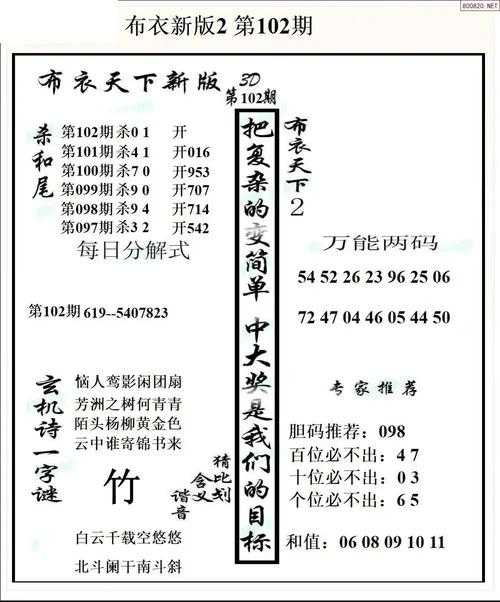 800820.NET
布衣新版2 第102期
布衣天下新版 3D
第102期
杀和尾
第102期 杀0 1 开
第101期 杀4 1 开016
第100期 杀7 0 开953
第099期 杀9 0 开707
第098期 杀9 4 开714
第097期 杀3 2 开542
每日分解式
第102期 619--5407823
玄机诗一字谜
恼人鸾影闲团扇
芳洲之树何青青
陌头杨柳黄金色
云中谁寄锦书来
竹
猜比划
含义
谐音
白云千载空悠悠
北斗阑干南斗斜
把复杂的变简单 中大奖是我们的目标
布衣天下2
万能两码
54 52 26 23 96 25 06
72 47 04 46 05 44 50
专家推荐
胆码推荐：098
百位必不出：4 7
十位必不出：0 3
个位必不出：6 5
和值：06 08 09 10 11